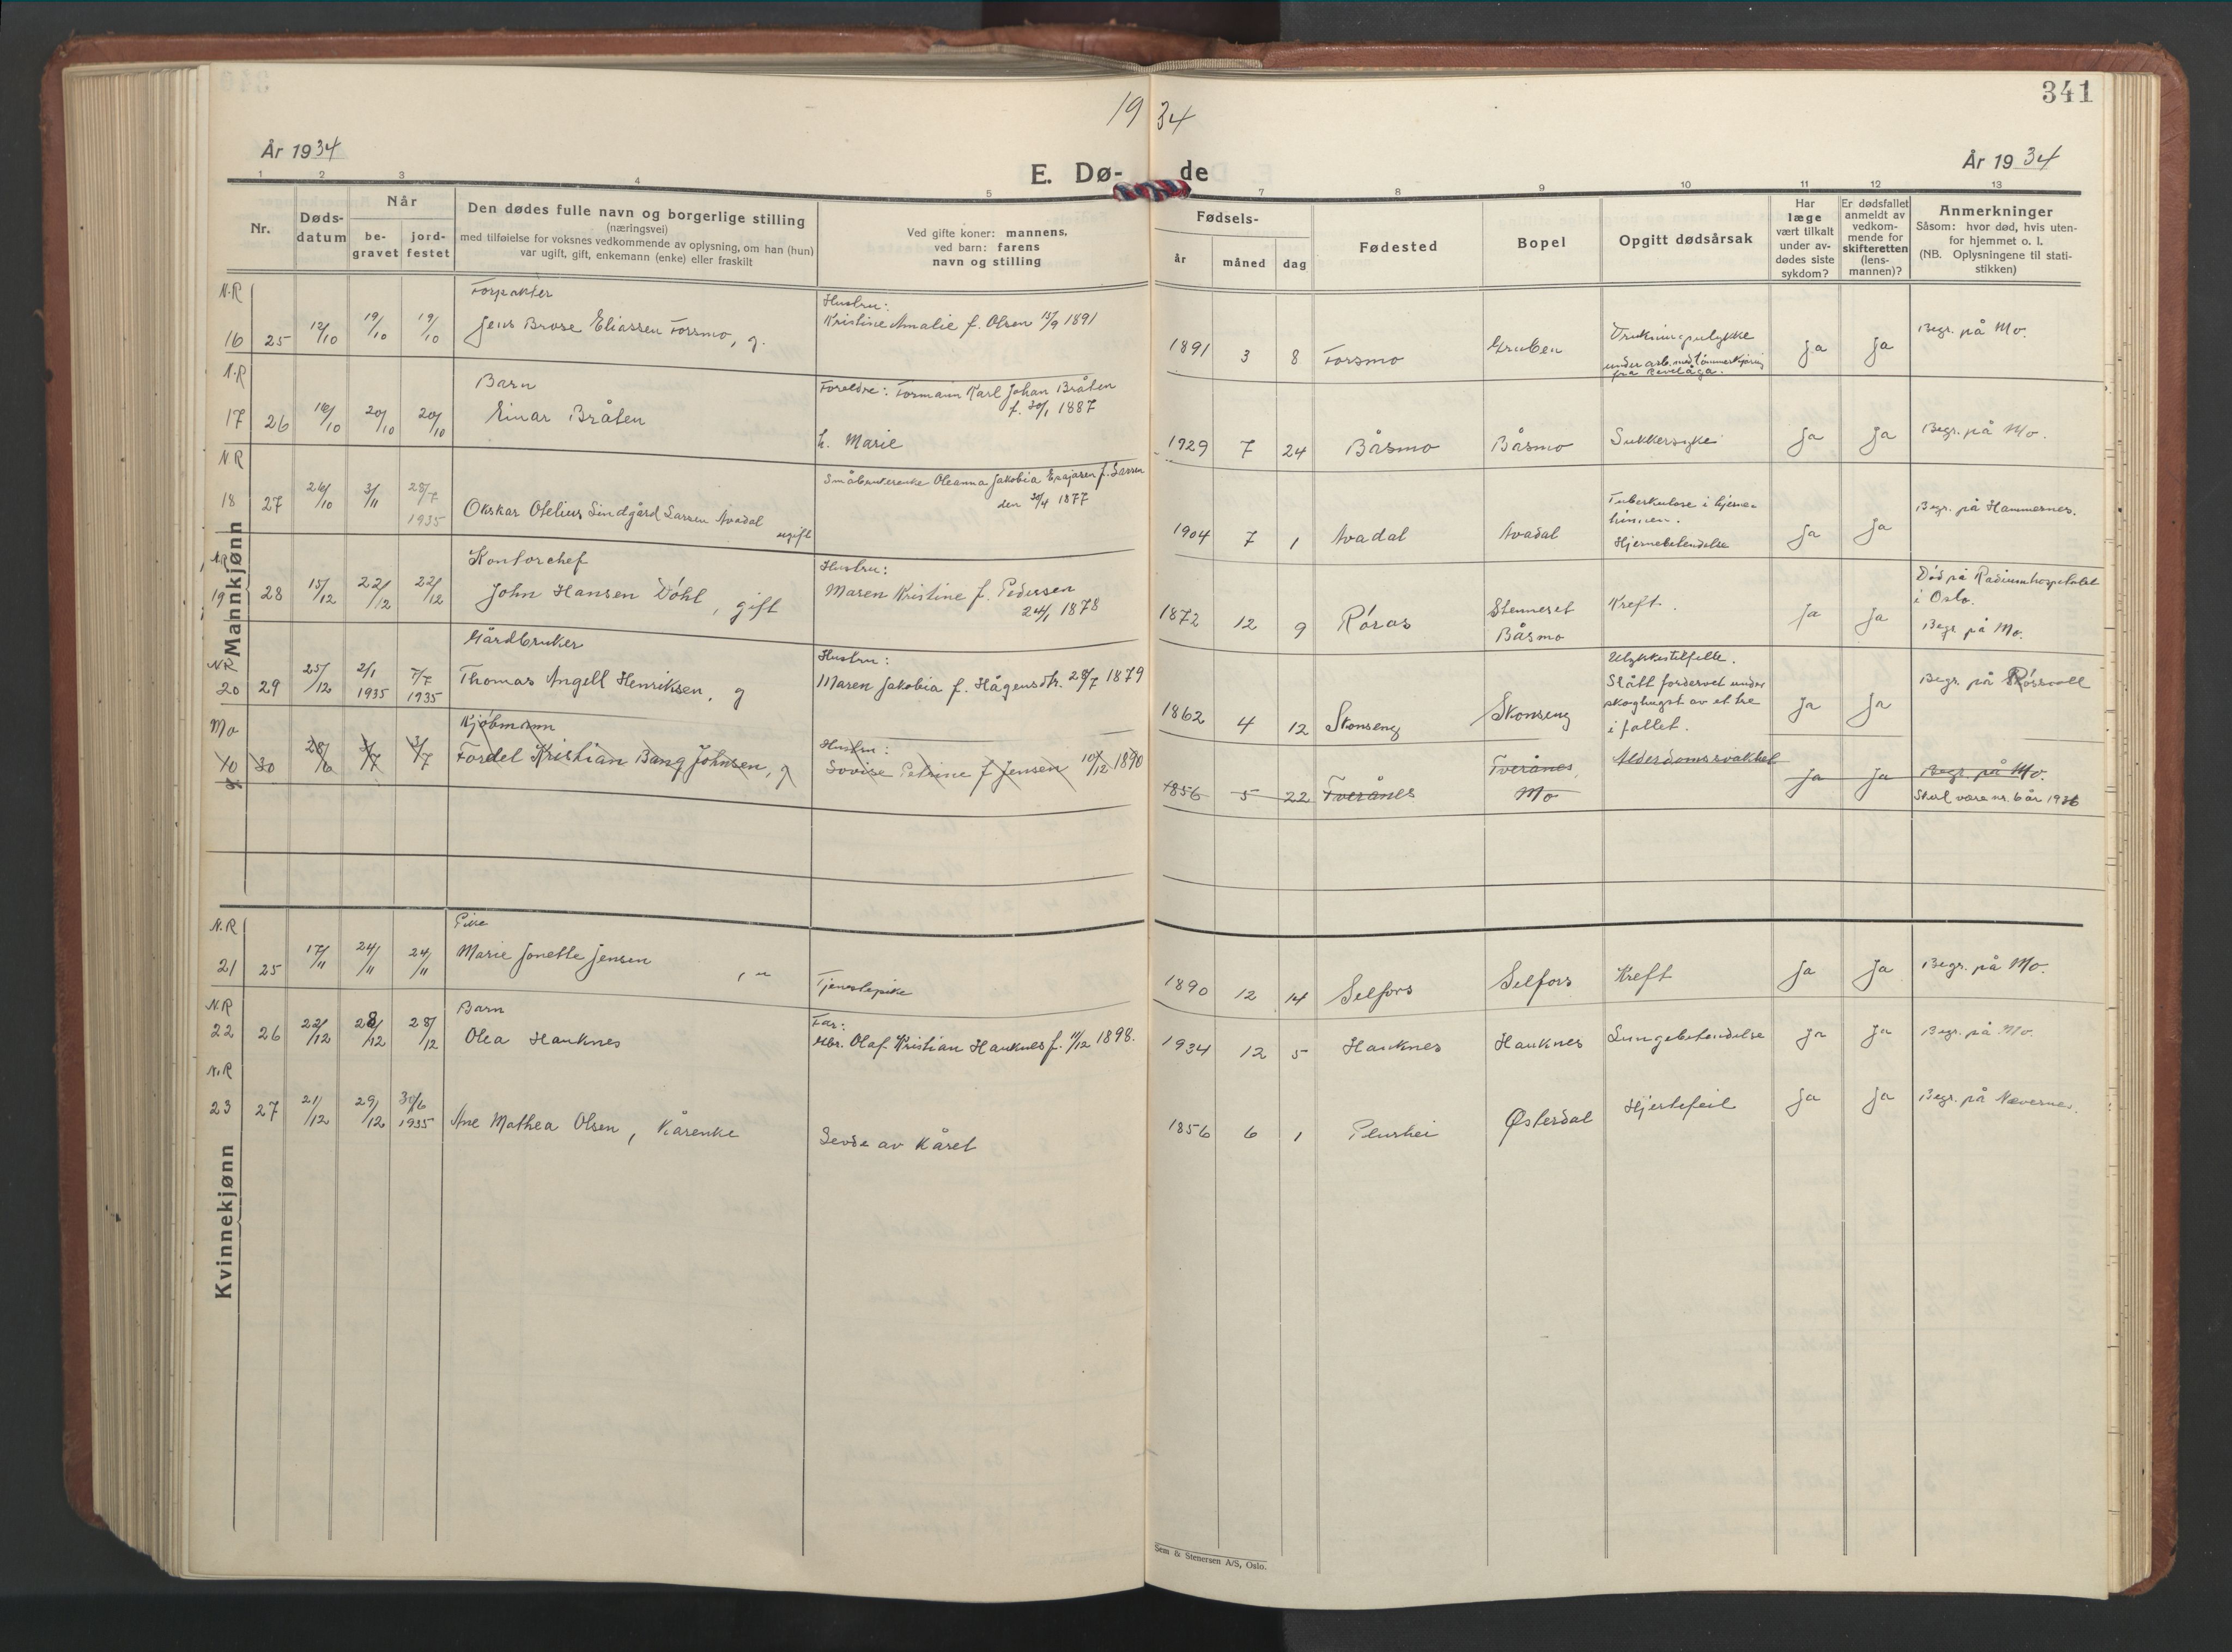 341
19 34
År 1934
År 1934
E. Dø- de
1 2 3 4 5 7 8 9 10 11 12 13
Nr.
Døds-
datum
Når
be-
gravet
jord-
festet
Den dødes fulle navn og borgerlige stilling
(næringsvei)
med tilføielse for voksnes vedkommende av oplysning, om han (hun)
var ugift, gift, enkemann (enke) eller fraskilt
Ved gifte koner: mannens,
ved barn: farens
navn og stilling
Fødsels-
år
måned
dag
Fødested
Bopel
Opgitt dødsårsak
Har
læge
vært tilkalt
under av-
dødes siste
sykdom?
Er dødsfallet
anmeldt av
vedkom-
mende for
skifteretten
(lens-
mannen)?
Anmerkninger
Såsom: hvor død, hvis uten-
for hjemmet o. l.
(NB. Oplysningene til stati-
stikken)
Mannkjønn
N.R
16 25 12/10 19/10 19/10
Forpakter
Jens Brose Eliassen Forsmo, g.
Hustru:
Kristine Amalie f. Olsen 15/9 1891
1891 3 8 Forsmo Gruben
Drukningsulykke
under arb. med tømmerkjøring
fra Revelåga.
Ja Ja Begr. på Mo.
N.R
17 26 16/10 20/10 20/10
Barn
Einar Bråten
Foreldre: Formann Karl Johan Bråten
f. 30/1 1887
h. Marie
1929 7 24 Båsmo Båsmo Sukkersyke Ja Ja Begr. på Mo.
N R
18 27 26/10 3/11 28/7
1935
Okskar Otelius Lindgård Larsen Avadal
ugift
Småbrukerenke Oleanna Jakobia f. Larsen
den 30/4 1877
1904 7 1 Avadal Avadal
Tuberkulose i hjerne-
hinnen.
Hjernebetendelse
Ja Ja Begr. på Hammernes.
N R
19 28 15/12 22/12 22/12
Kontorchef
John Hansen Døhl, gift
Hustru:
Maren Kristine f. Pedersen
24/1 1878
1872 12 9 Røros
Stenneset
Båsmo
Kreft. Ja Ja
Død på Radiumhospitalet
i Oslo.
Begr. på Mo.
N R
20 29 25/12 2/1
1935 7/7
1935
Gårdbruker
Thomas Angell Henriksen, g
Hustru:
Maren Jakobia f. Hågensdtr. 28/7 1879
1862 4 12 Skonseng Skonseng
Ulykkestilfelle.
Slått fordervet under
skoghugst av et tre
i fallet.
Ja Ja Begr. på Røsvoll
Mo
10 30 28/6 3/7 3/7
Kjøbmann
Fordel Kristian Bang Johnsen, g
Hustru:
Lovise Petrine f Jensen 10/12 1890
1856 5 22 Tverånes
Tverånes,
Mo
Alderdomssvakhet
Ja Ja Begr. på Mo.
Skal være nr. 6 år 1936
Kvinnekjønn
N.R
21 25 17/11 24/11 24/11
Pike
Marie Jonette Jensen
Tjenestepike
1890 12 14 Selfors Selfors Kreft Ja Ja Begr. på Mo.
N.R
22 26 22/12 28/12 28/12
Barn
Olea Hauknes
Far:
Gbr. Olaf Kristian Hauknes f. 11/12 1898.
1934 12 5 Hauknes Hauknes Lungebetendelse Ja Ja Begr. på Mo.
N.R
23 27 21/12 29/12 30/6
1935
Ane Mathea Olsen, Kårenke
Levde av Kåret
1856 6 1 Plurhei Østerdal Hjertefeil Ja Ja Begr. på Nevernes.
Sem & Stenersen A/S, Oslo.